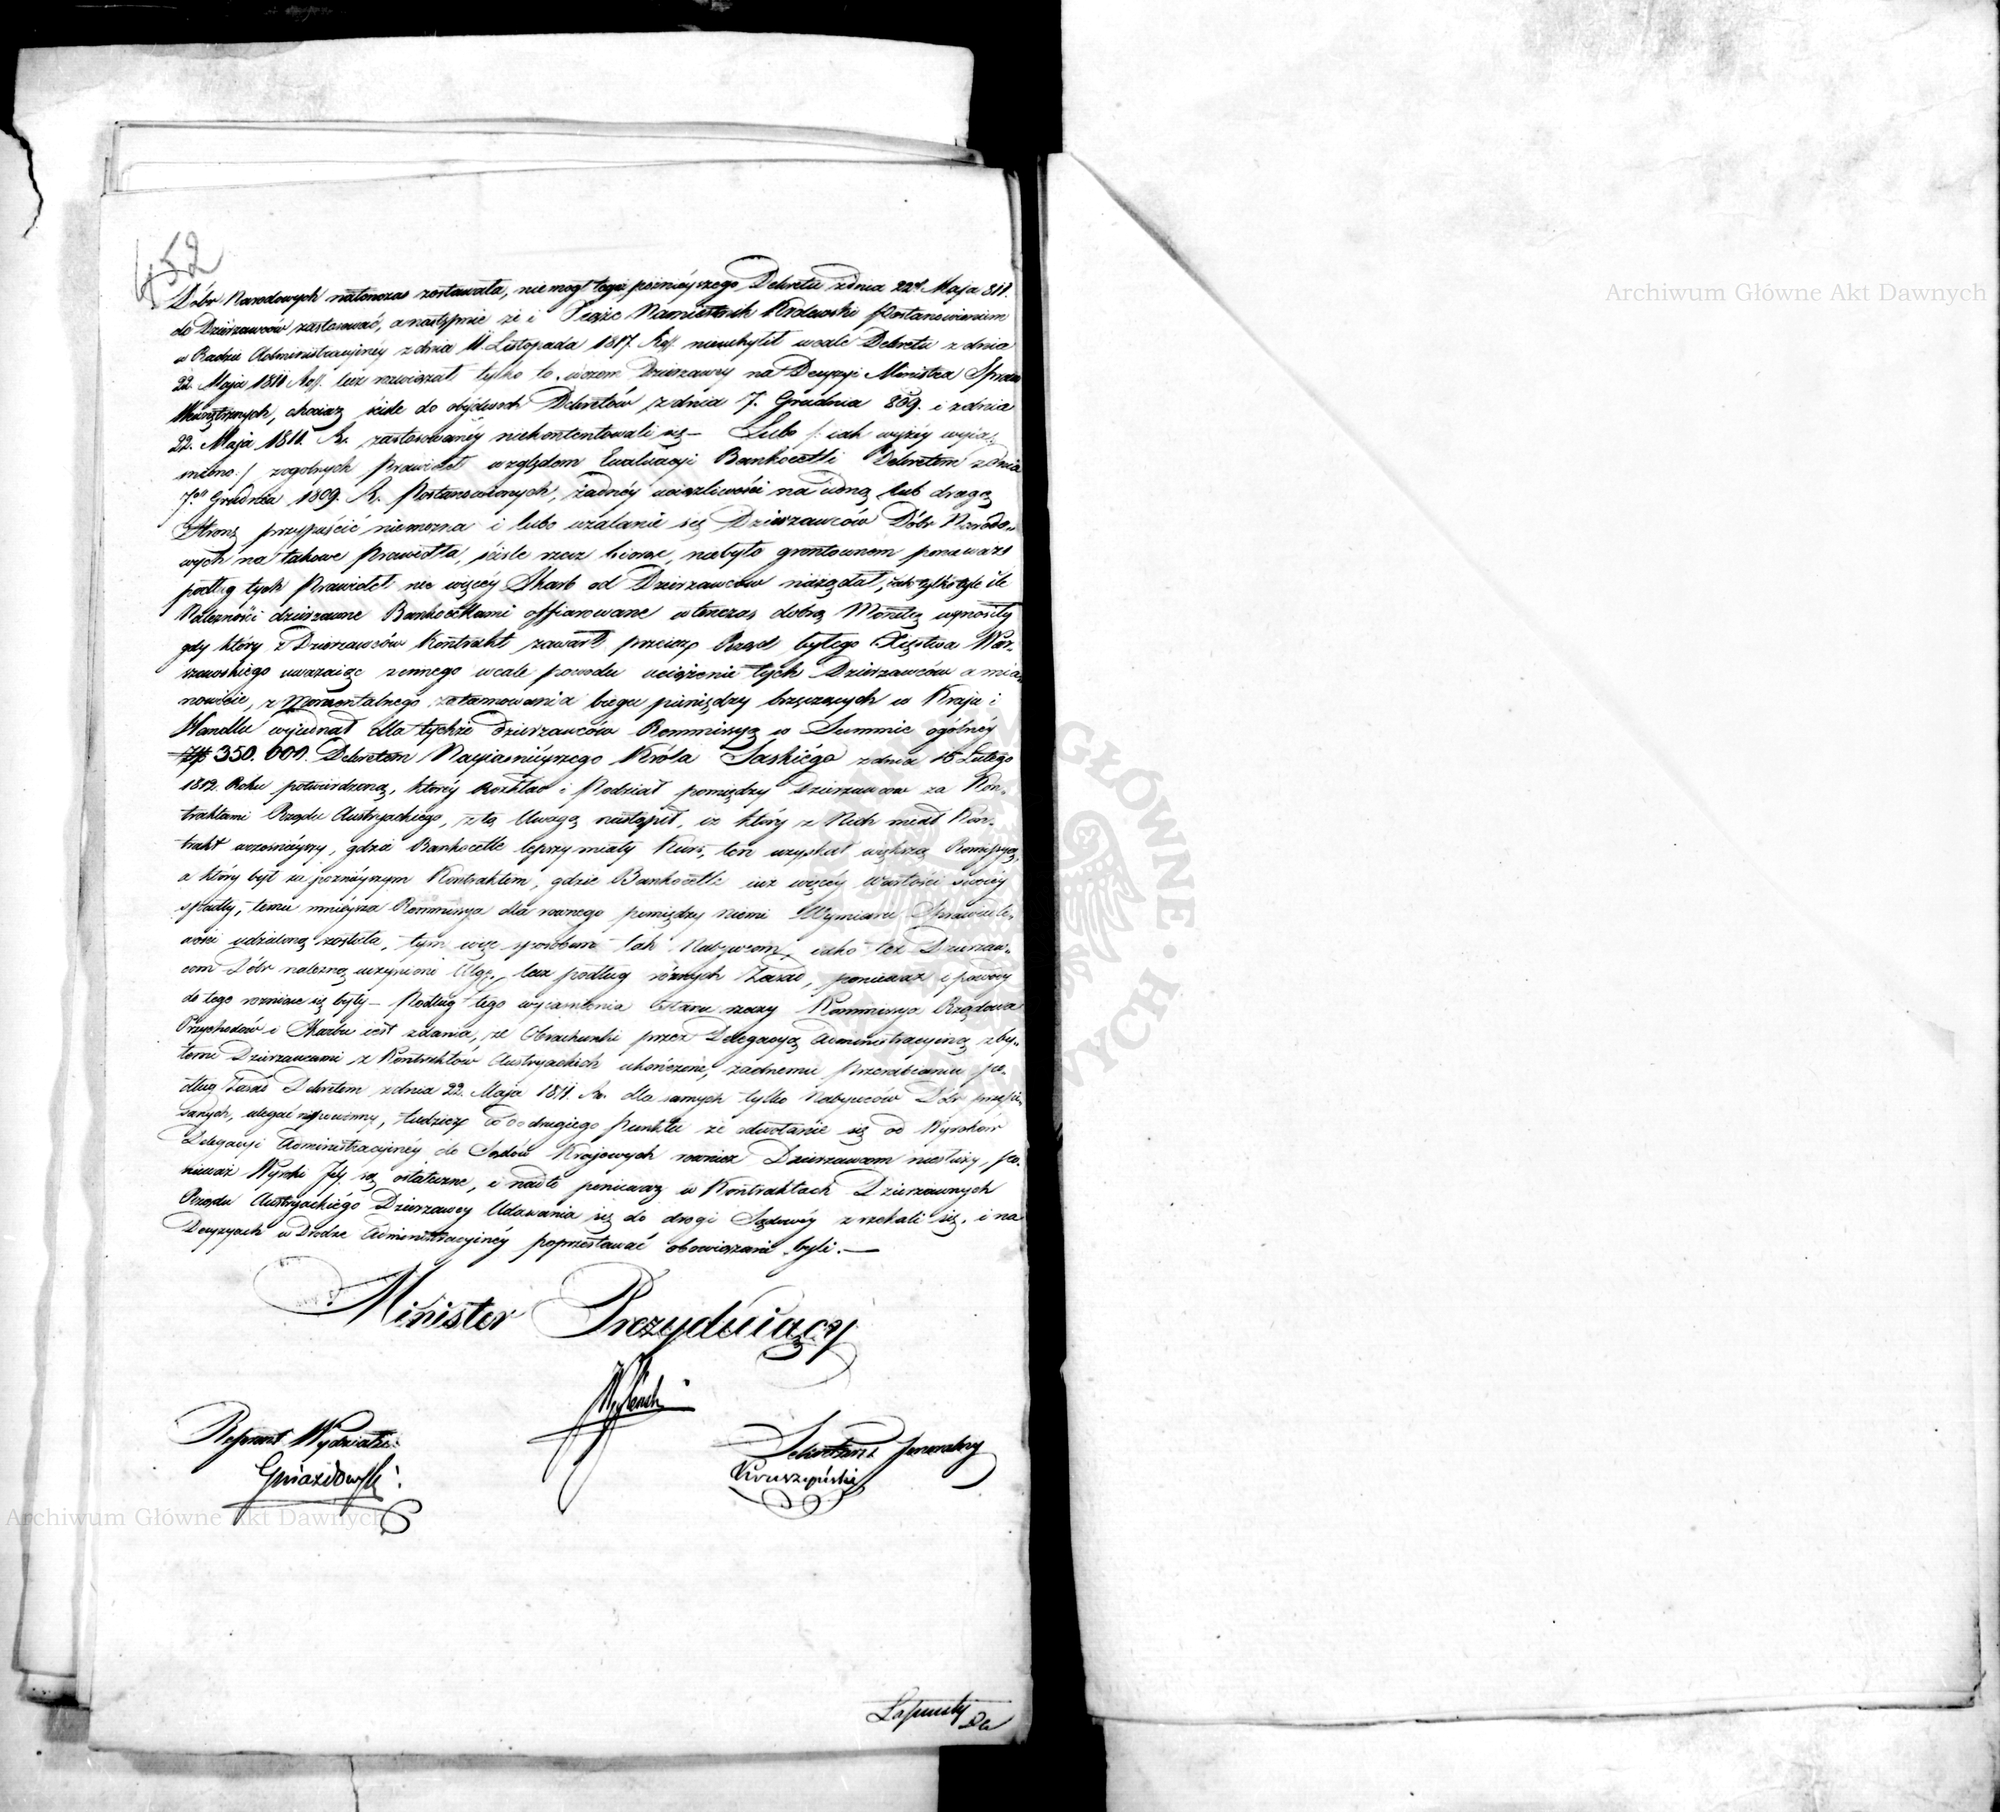 452
Dóbr Narodowych natenczas zostawała, niemógł tego późnieyszego Dekretu z dnia 22go Maja 811.
do Dzierzawców zastosować, a następnie że i Xiąże Namiestnik Królewski Postanowieniem
w Radzie Administracyinéy z dnia 11. Listopada 1817. nieuchylił wcale Dekretu z dnia
22. Maja 1811 lecz rozwiązał tylko to, iż Dzierzawcy na Decyzyi Ministra Spraw
Wewnętrznych, chociaż ściśle do obydwoch Dekretów z dnia 7. Grudnia 809. i z dnia
22. Maja 1811. R. zastosowanéy niekontentowali się – Lubo /: iak wyżéy wyia„
śniono :/ z ogolnych Prawideł względem Ewaluacyi Bankocetli Dekretem z dnia
7go Grudnia 1809. R. Postanowionych, żadnéy uciążliwości na iedną lub drugą
Stronę przypuścić niemożna i lubo użalanie się Dzierzawców Dóbr Narodo„
wych na takowe Prawidła, ściśle rzecz biorąc, niebyło gruntownem ponieważ
podług tych Prawideł nic więcéy Skarb od Dzierzawców nieżądał, iak tylko tyle ile
Należności dzierzawne Bankocetlami offiarowane wtenczas dobrą Monetą wynosiły
gdy który z Dzierzawców Kontrakt zawarł, przecież Rząd byłego Xięstwa War„
szawskiego uważaiąc z innego wcale powodu uciążenie tych Dzierzawców a mia„
nowicie, z momentalnego zatamowania biegu pieniędzy brzęczących w Kraju i
Handlu wyiednał dla tychże Dzierzawców Remmissyą w Summie ogólnéy
Złp 350.000. Dekretem Nayiaśnieyszego Króla Saskiégo z dnia 15 Lutego
1812. Roku potwierdzoną, któréy Rozkład i Podział pomiędzy Dzierzawców za Kon„
traktami Rządu Austryackiego, z tą Uwagą nastąpił, iż który z Nich miał Kon„
trakt wcześnieyszy, gdzie Bankocetle lepszy miały Kurs, ten uzyskał większą Remissyą,
a który był za poznieyszym Kontraktem, gdzie Bankocetle iuż więcéy Wartości swoiéy
spadły, temu mnieysza Remmissya dla rownego pomiędzy niemi Wymiaru Sprawiedli„
wości udzieloną została, tym więc sposobem tak Nabywcom, iako też Dzierzaw„
com Dóbr należną uczyniono Ulgę, lecz podług różnych Zasad, ponieważ i powody
do tego rozniące się były – Podług tego wyiaśnienia Stanu rzeczy Kommissya Rządowa
Przychodów i Skarbu iest zdania, że Obrachunki przez Delegacyą Administracyiną z by„
łemi Dzierzawcami z Kontraktów Austryackich ukończone, żadnemu Przerabianiu po„
dług Zasad Dekretem z dnia 22. Maja 1811. R. dla samych tylko Nabywców Dóbr przepi„
sanych, ulegać niepowinny, tudzież co do drugiego Punktu że odwołanie się od Wyroków
Delegacyi Administracyinéy do Sądów Krajowych rownież Dzierzawcom niesłuży, po„
nieważ Wyroki Jéy są ostateczne, i nadto ponieważ w Kontraktach Dzierzawnych
Rządu Austryackiégo Dzierzawcy Udawania się do drogi Sądowéy zrzekali się, i na
Decyzyach w Drodze Administracyinéy poprzestawać obowiązani byli. —
Minister Prezyduiący
Węgleński
Referent Wydziału
Gwiazdowski
Sekretarz Jeneralny
Kruszyński
Archiwum Główne Akt Dawnych
Archiwum Główne Akt Dawnych